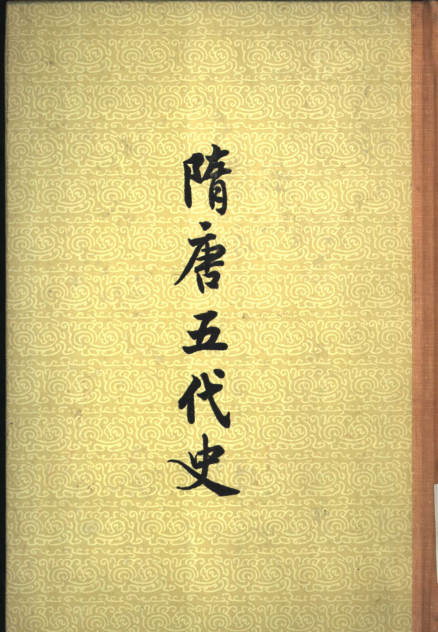 隋唐五代史